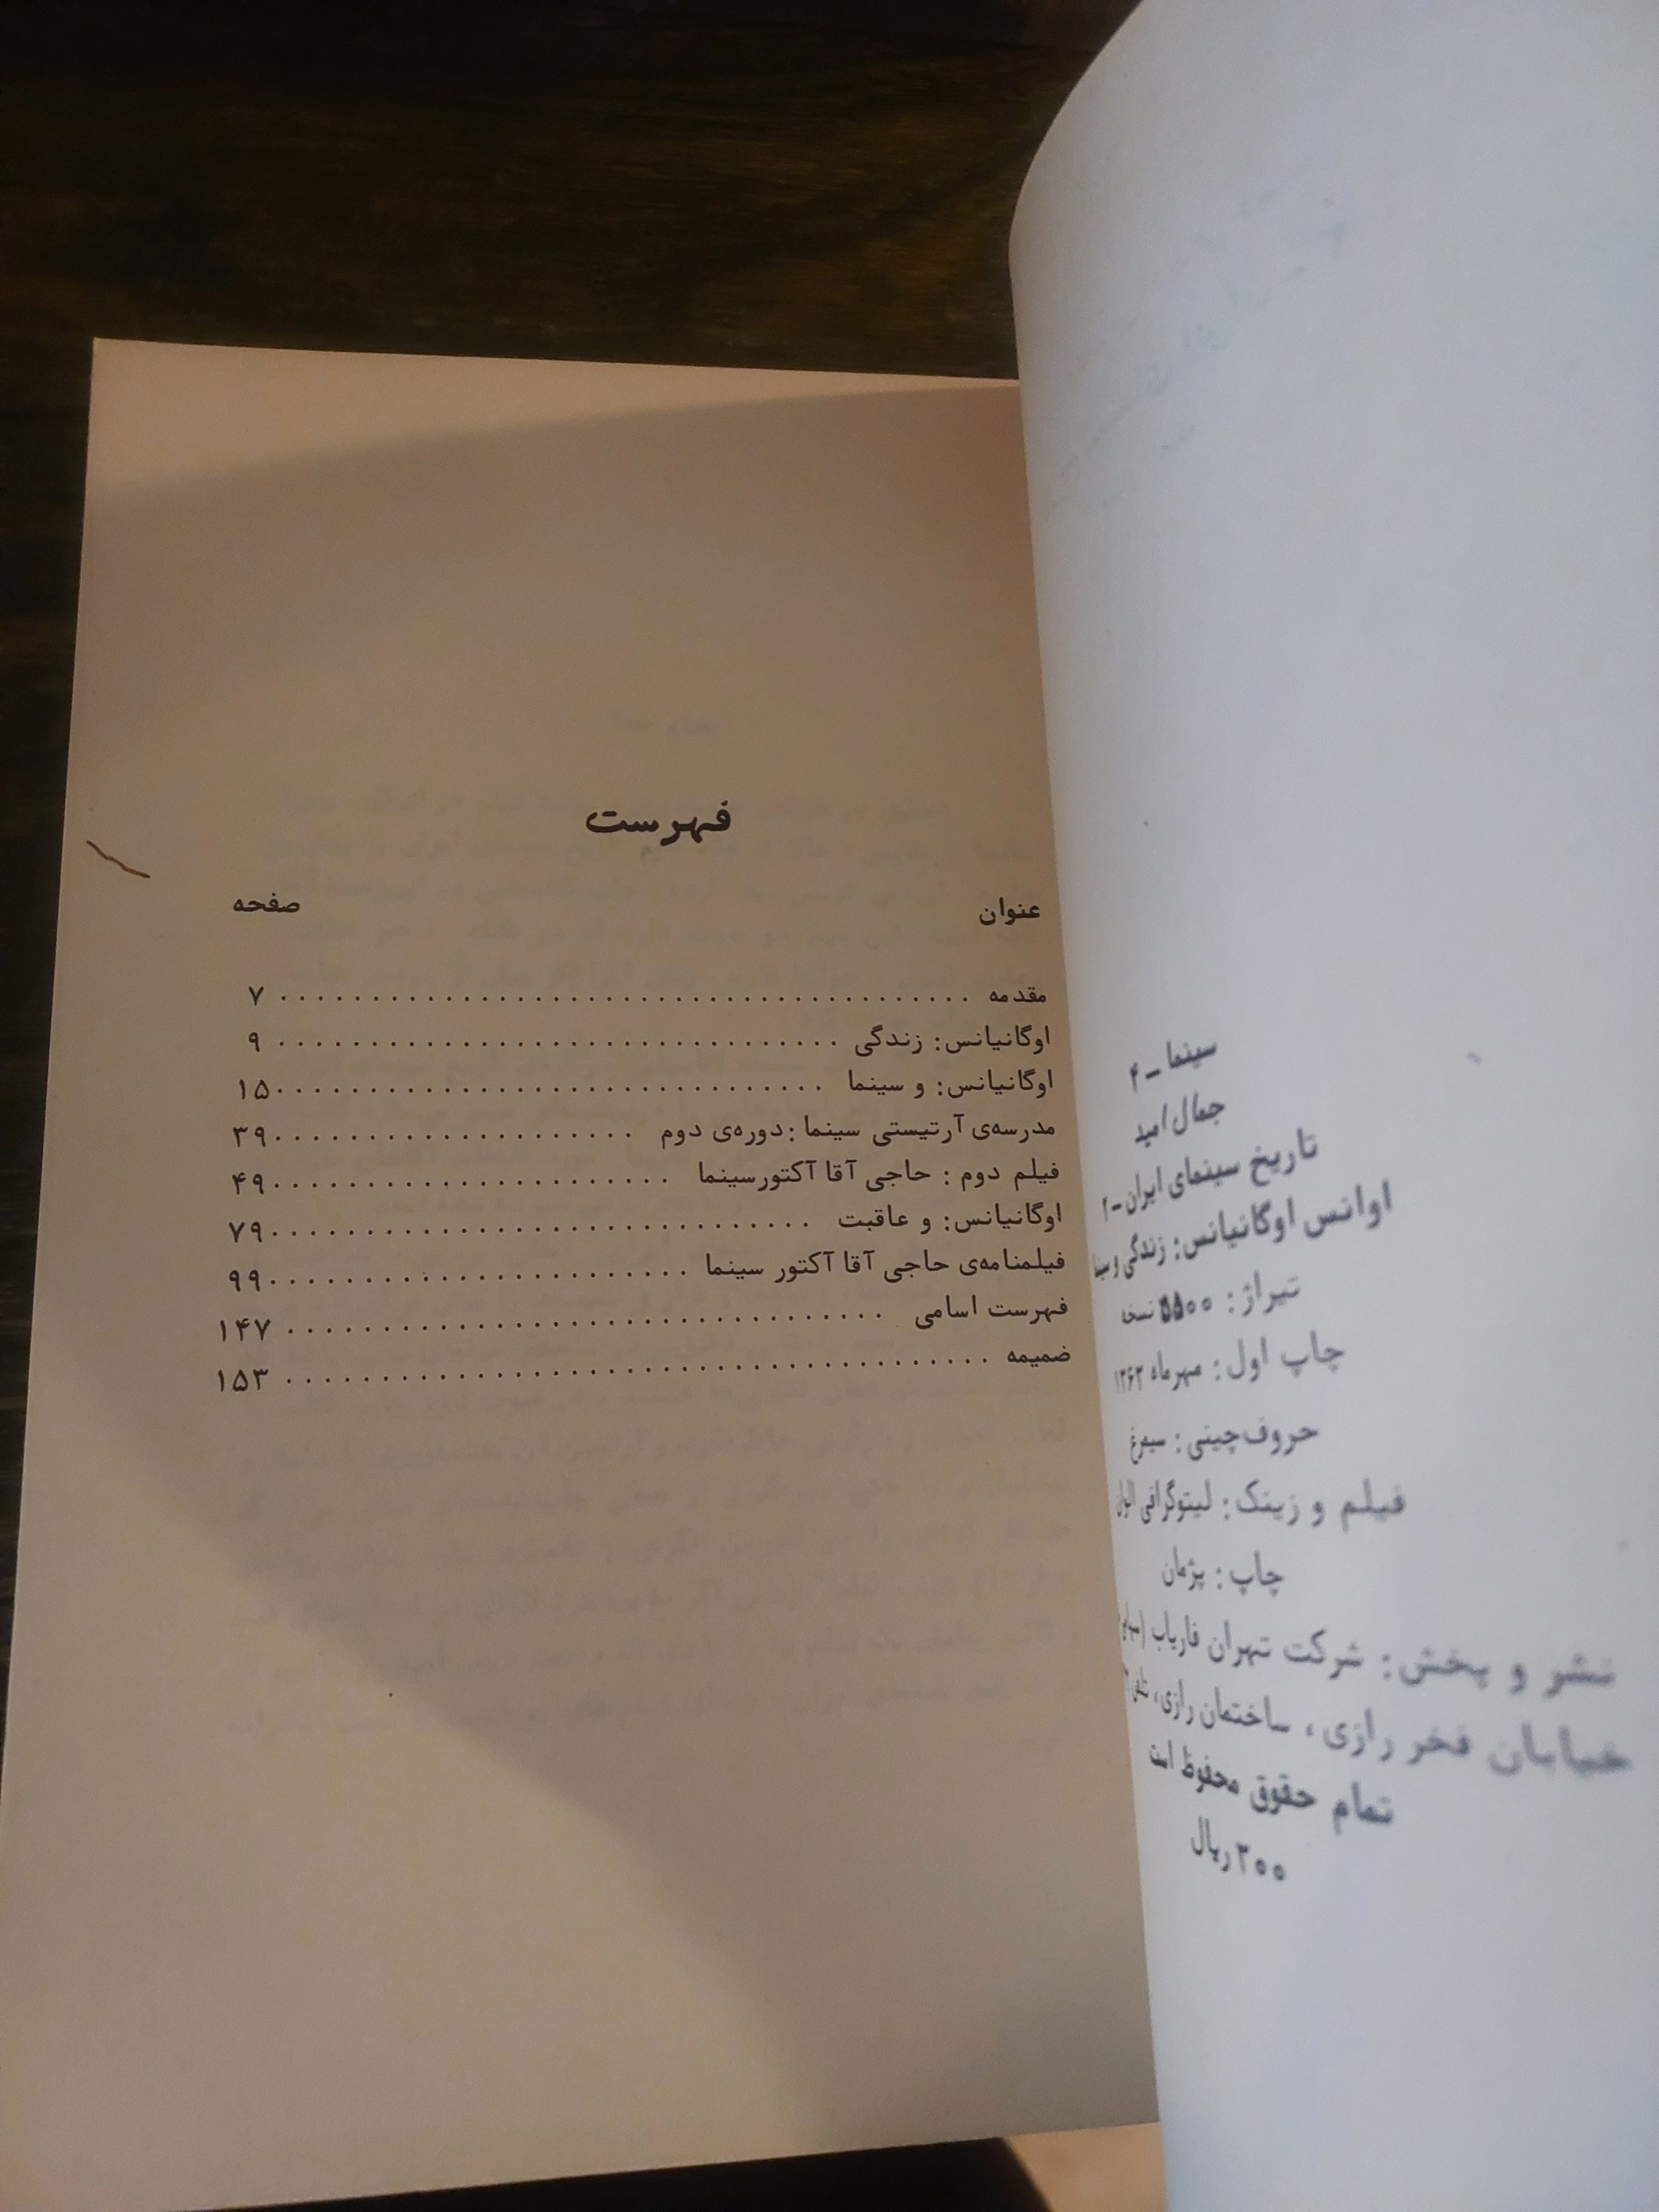 سینما ـ ۴
جمال امید
تاریخ سینمای ایران ـ ۲
اوانس اوگانیانس: زندگی و سینما
تیراژ: ۵۵۰۰ نسخه
چاپ اول: مهرماه ۱۳۶۳
حروف‌چینی: سیمرغ
فیلم و زینک: لیتوگرافی الوان
چاپ: پژمان
نشر و پخش: شرکت تهران فاریاب
خیابان فخر رازی، ساختمان رازی، تلفن
تمام حقوق محفوظ است
۳۰۰ ریال
فهرست
عنوان صفحه
مقدمه ........................................ ۷
اوگانیانس: زندگی ................................ ۹
اوگانیانس: و سینما ................................ ۱۵
مدرسه‌ی آرتیستی سینما: دوره‌ی دوم ..................... ۳۹
فیلم دوم: حاجی آقا آکتور سینما ....................... ۴۹
اوگانیانس: و عاقبت ............................... ۷۹
فیلمنامه‌ی حاجی آقا آکتور سینما ........................ ۹۹
فهرست اسامی ................................ ۱۴۷
ضمیمه ........................................ ۱۵۳